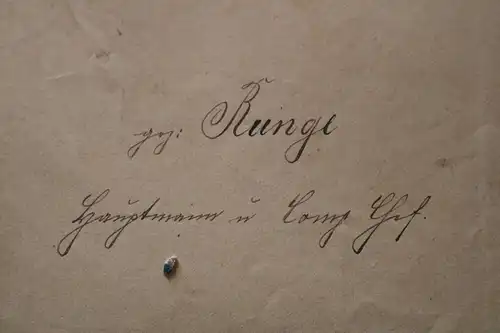 gez: Runge
Hauptmann u Comp Chef.